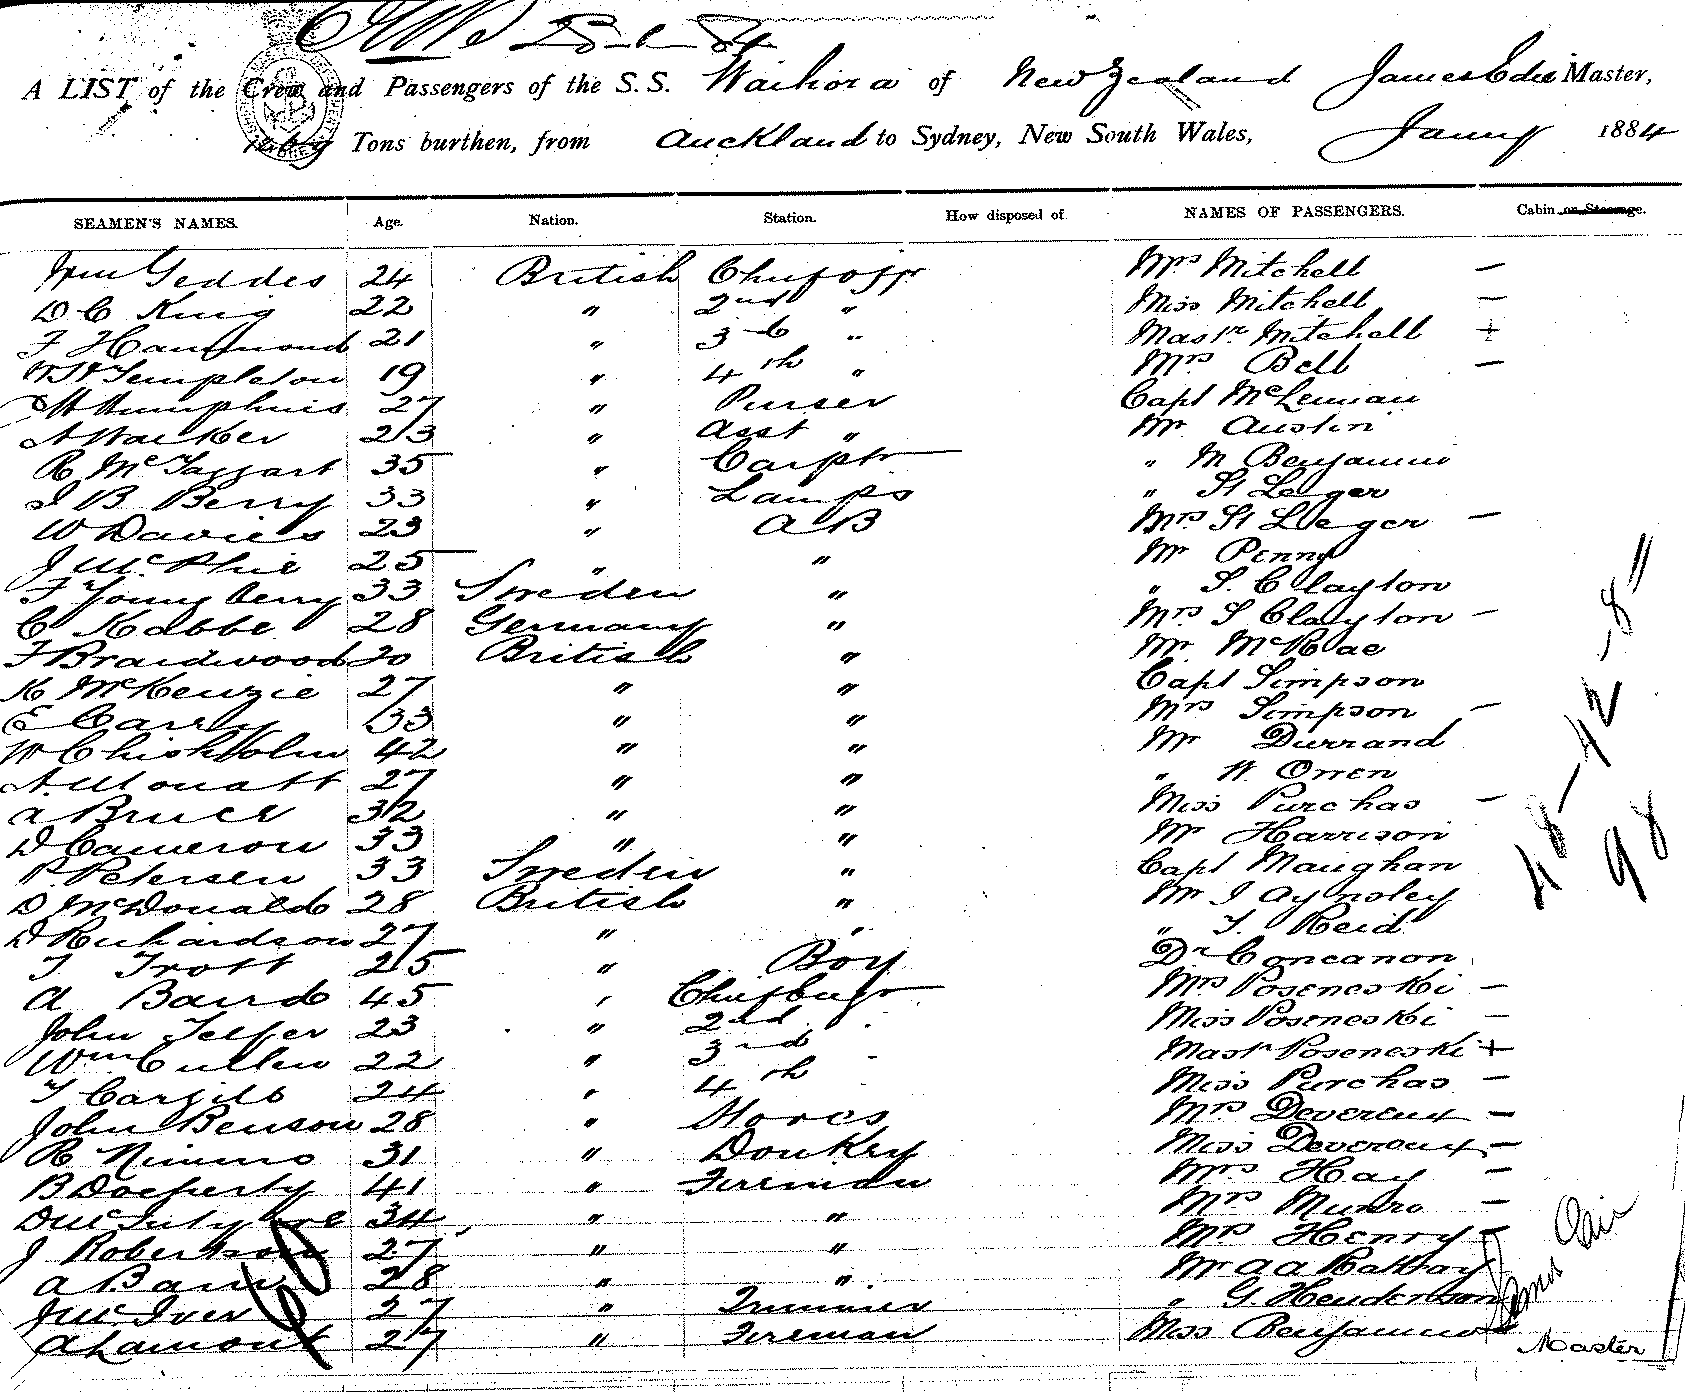 A LIST of the Crew and Passengers of the S.S. Waihora of New Zealand James Edie Master,
Tons burthen, from Auckland to Sydney, New South Wales, Janny 1884
SEAMEN'S NAMES. Age. Nation. Station. How disposed of. NAMES OF PASSENGERS. Cabin or Steerage.
Wm Geddes 24 British Chief Offr Mrs Mitchell —
D C King 22 " 2nd " Miss Mitchell —
F Hammond 21 " 3d " Mastr Mitchell +
Templeton 19 " 4th " Mrs Bell —
Humphries 27 " Purser Capt McLennan
23 " Asst " Mr Austin
R McTaggart 35 " Carptr " M Benjamin
J B Berry 33 " Lamps " St Leger
W Davies 23 " A B Mrs St Leger —
J McPhie 25 " " Mr Penny
F Youngberry 33 Sweden " " S. Clayton
C Kabbe 28 Germany " Mrs S Clayton —
F Braidwood 20 British " Mr McRae
K McKenzie 27 " " Capt Simpson
E Carry 33 " " Mrs Simpson —
W Chishholm 42 " " Mr Durrand
A. Mouatt 27 " " " W Orren
A Bruce 32 " " Miss Purchas —
D Cameron 33 " " Mr Harrison
P. Petersen 33 Sweden " Capt Maughan
D McDonald 28 British " Mr J Aynsley
D Richardson 27 " " " T. Reid
T Trott 25 " Boy Dr Concanon
A Baird 45 " Chief Engr Mrs Poseneski —
John Telfer 23 " 2nd " Miss Poseneski —
Wm Cullen 22 " 3rd " Mastr Poseneski +
T Cargill 24 " 4th Miss Purchas —
John Benson 28 " Stores Mrs Devereux —
R Nimmo 31 " Donkey Miss Devereux —
B Docherty 41 " Fireman Mrs Hay —
D McIntyre 34 " " Mrs Munro —
J Robertson 27 " " Mrs Henry —
A Bain 28 " " Mr A A Rattray
J McIver 27 " Trimmer " G. Henderson
A Lamont 27 " Fireman Miss Benjamin —
60
48 – 42 – 8"
98
Master